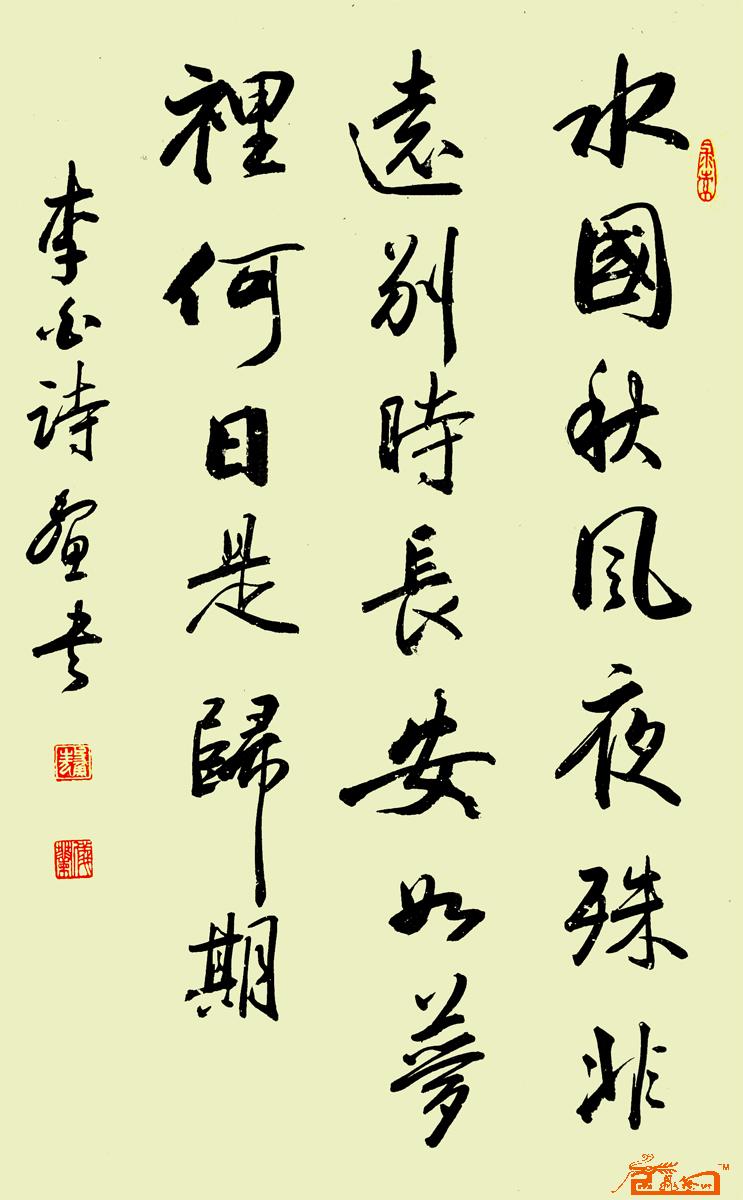 水國秋风夜殊非
遠别時長安如夢
裡何日是歸期
李白詩 書